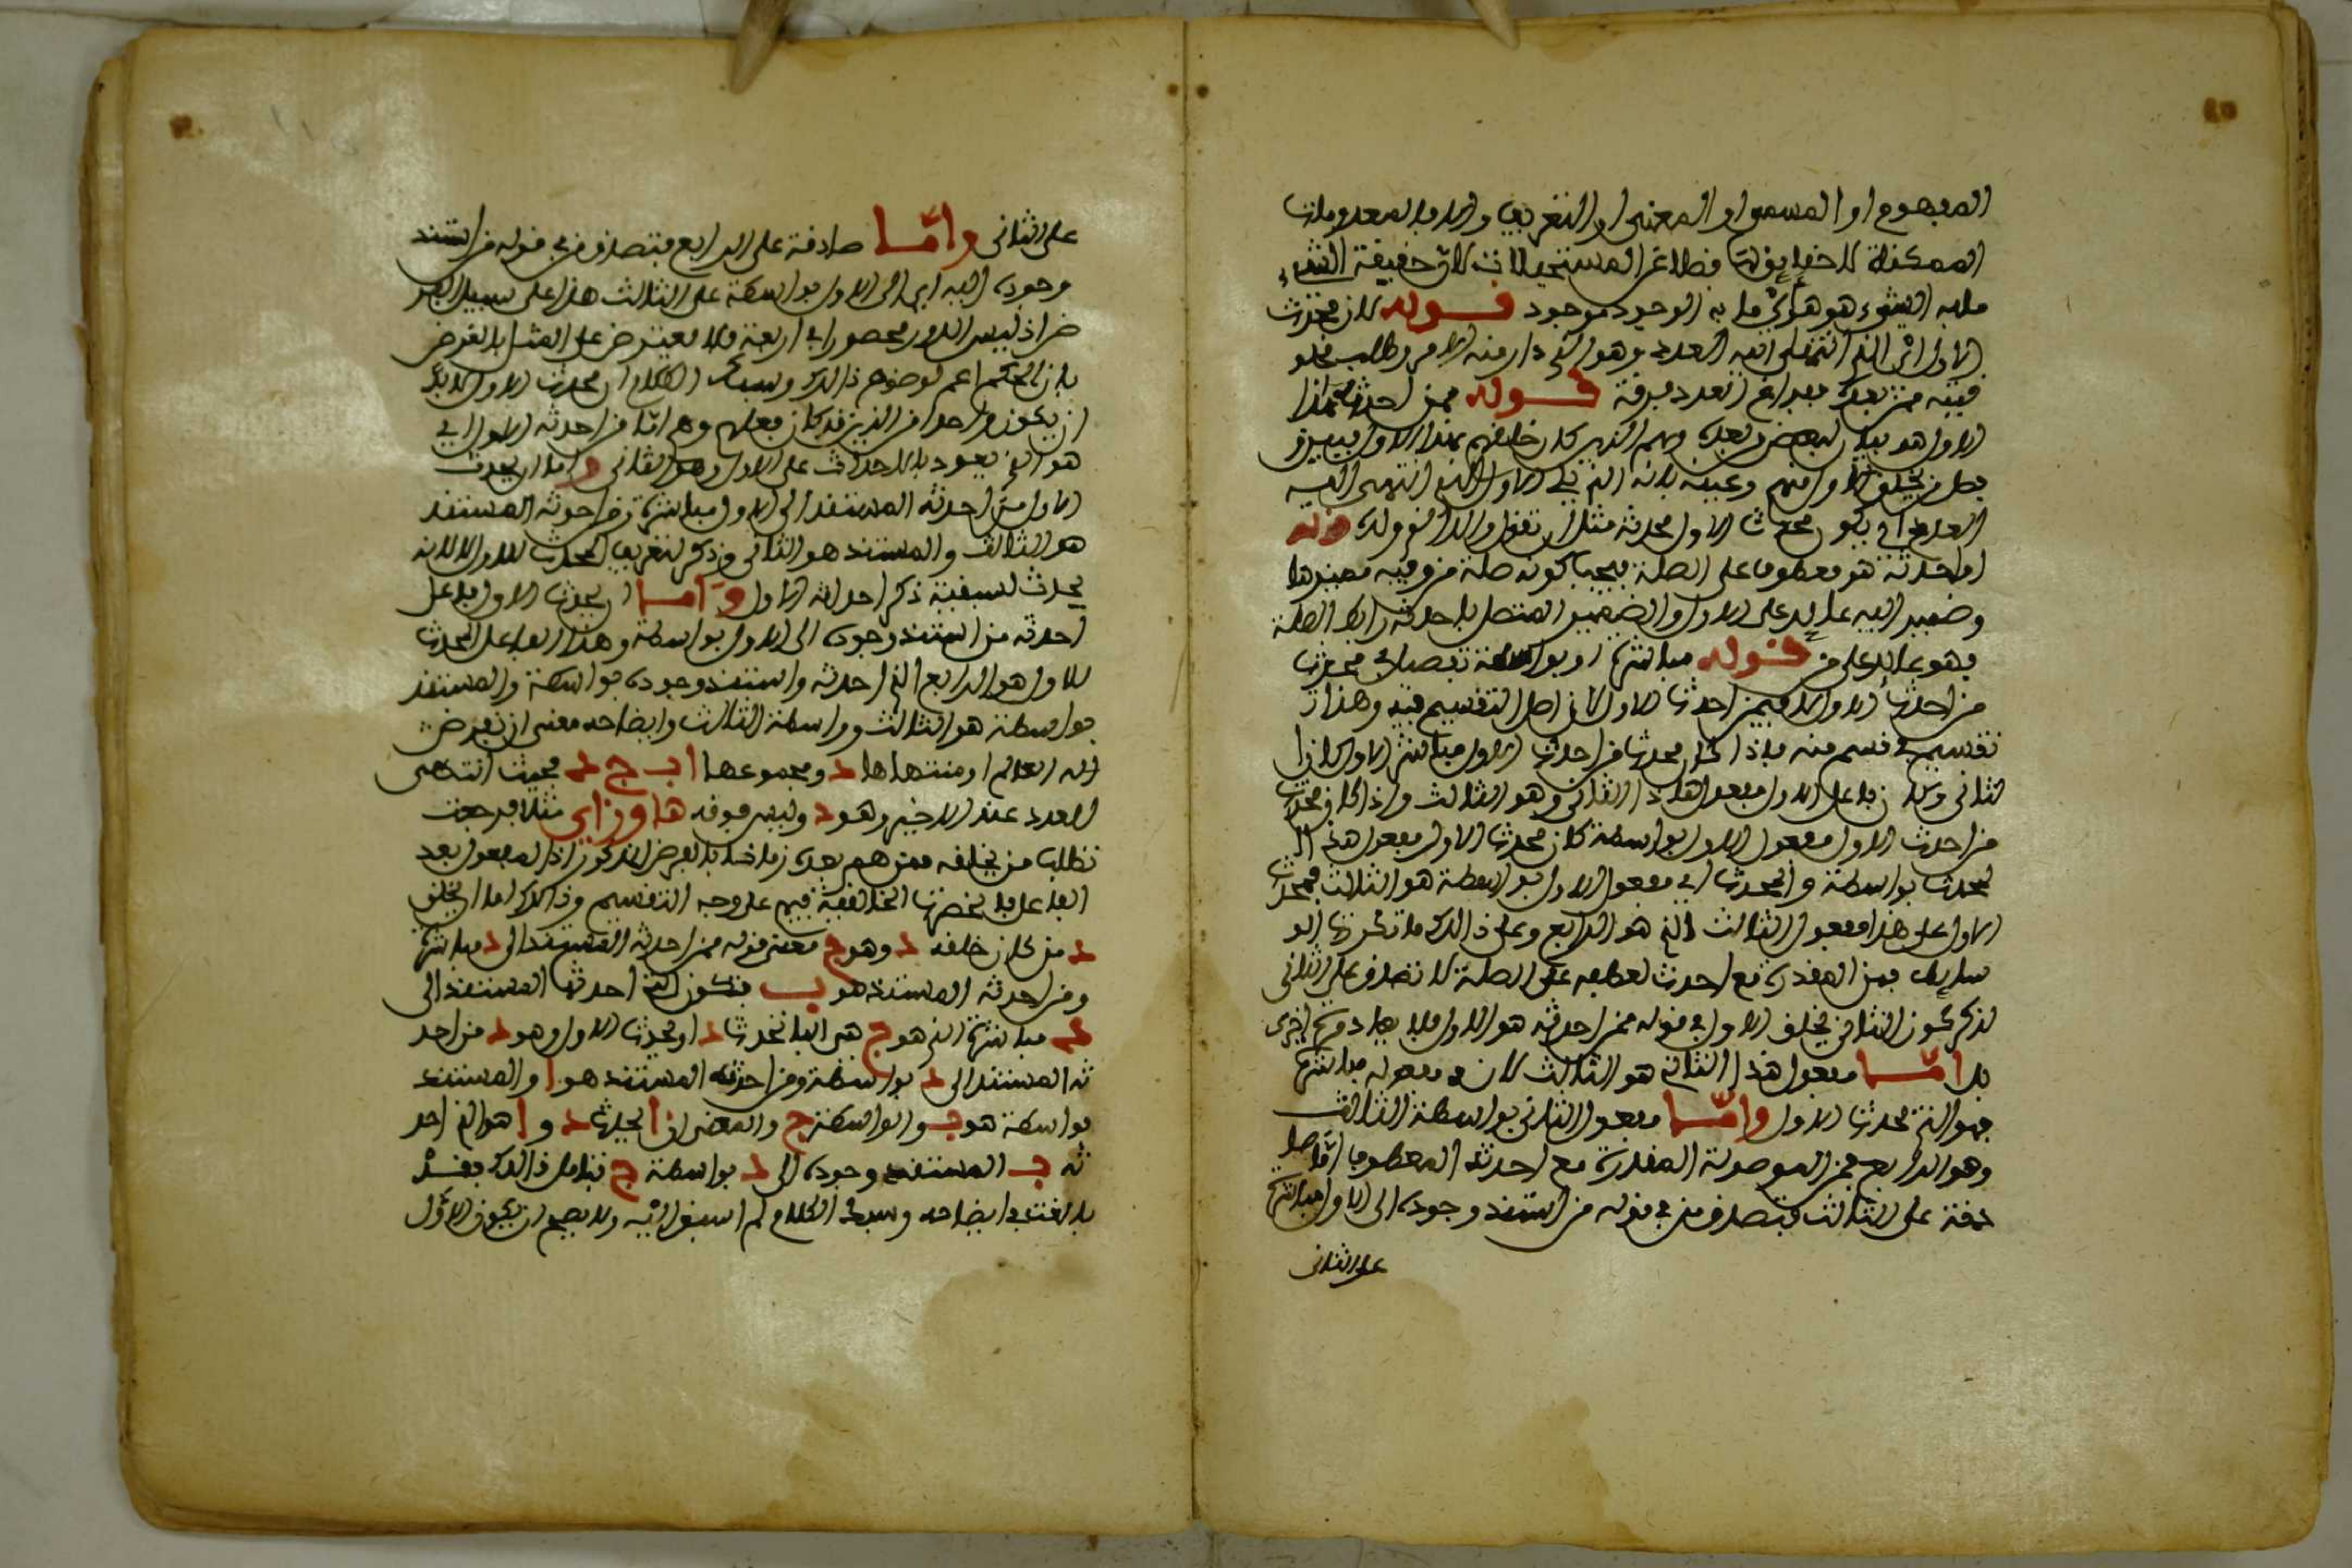 المفهوم او المسمى او المعنى او التعريف والا فالمعدومات
الممكنة لا حقايق لها فضلا عن المستحيلات لان حقيقة الشيء
ما به الشيء هو هو اي ما به الوجود موجود قوله لان محدث
الاول اثر الذي انتهى اليه العدد وهو الذي دار منه الامر وطلب
فيمن بعده بعد ان تعدد فوقه قوله ممن احدثه هذا
الاول هو بيان لبعض من بعده وهم الذين كان خلفهم هذا الاول
الاول منهم وعينه بانه الذي الاول الذي انتهى اليه
العدد اي يكون محدث الاول محدثه مثل ان تقول والدا من ولده قوله
او احدثه هو معطوف على الصلة فيجب كونه صلة من وفيه ضميرها
وضمير اليه عايد على الاول والضمير المتصل باحدثه رابط الصلة
فهو عايد على من قوله مباشرة او بواسطة تفصيل في محدث
من احدث الاول لا فيمن احدث الاول لان اصل التقسيم فيه وهذا
تقسيم في قسم منه فاذا كان محدث من احدث الاول مباشر الاول كان ا
لثاني وكان فاعل الاول مفعول هذا الثاني وهو الثالث واذا كان محدث
من احدث الاول مفعول الاول بواسطة كان محدث الاول مفعول هذا ا
لمحدث بواسطة والمحدث اي مفعول الاول بواسطة هو الثالث فمحدث
الاول على هذا مفعول الثالث الذي هو الرابع وعلى ذلك
فمن المقدرة مع احدث لعطفه على الصلة لا تصدق على الثاني
لذكر كون الثاني يخلق الاول في قوله ممن احدثه هو الاول فلا يعاد مرة اخرى
بل اما مفعول هذا الثاني هو الثالث لان مفعوله مباشرة
فهو الذي يحدث الاول واما مفعول الثاني بواسطة الثالث
وهو الرابع فمن الموصولة المقدرة مع احدثه المعطوف اما صا
دقة على الثالث فتصدق من في قوله من استند وجوده الى الاول مباشرة
على الثاني
على الثاني واما صادقة على الرابع فتصدق من في قوله من استند
وجوده اليه اي الى الاول بواسطة على الثالث هذا على سبيل الفر
ض اذ ليس الدور محصورا في اربعة فلا يعترض على المثال بالفرض
بان الحكم اعم لوضوح ذلك وسياق الكلام ان محدث الاول لا بد
ان يكون واحدا من الذين قد كان فعلهم وهو اما من احدثه الاول اي
هو الذي يعود بالاحداث على الاول وهو الثاني واما ان يحدث
الاول من احدثه المستند الى الاول مباشرة فمن احدثه المستند
هو الثالث والمستند هو الثاني وذكر لتعريف المحدث للاول لا لانه
يحدث لسبقية ذكر احداثه الاول واما ان يحدث الاول فاعل
احدثه من استند وجوده الى الاول بواسطة وهذا الفاعل المحدث
للاول هو الرابع الذي احدثه واستند وجوده بواسطة والمستند
بواسطة هو الثالث وواسطة الثالث وايضاحه معنى ان نفرض
ان العالم او منتهاها د ومجموعها ا ب ج د بحيث انتهى
العدد عند الاخير وهو د وليس فوقه ها و زاي مثلا فرجعت
تطلب من يخلفه ممن هم بعده زمانا بالفرض المذكور اذ المفعول بعد
الفاعل فانحصرت الخالقية فيهم على وجه التقسيم وذلك اما ان يخلق
د من كان خلفه د وهو ج معنى قوله ممن احدثه المستند الى د مباشرة
ومن احدثه المستند هو ب فتكون التي احدثها المستند الى
د مباشرة الذي هو ج هي التي تحدث د او يحدث الاول وهو د من احد
ثه المستند الى د بواسطة ومن احدثه المستند هو ا والمستند
بواسطة هو ب والواسطة ج والمعنى ان ا يحدث د و ا هو الذي احد
ثه ب المستند وجوده الى د بواسطة ج فتامل ذلك فقد
بالغت في ايضاحه وبسط الكلام لم اسبق اليه ولا يصح ان يكون الاول